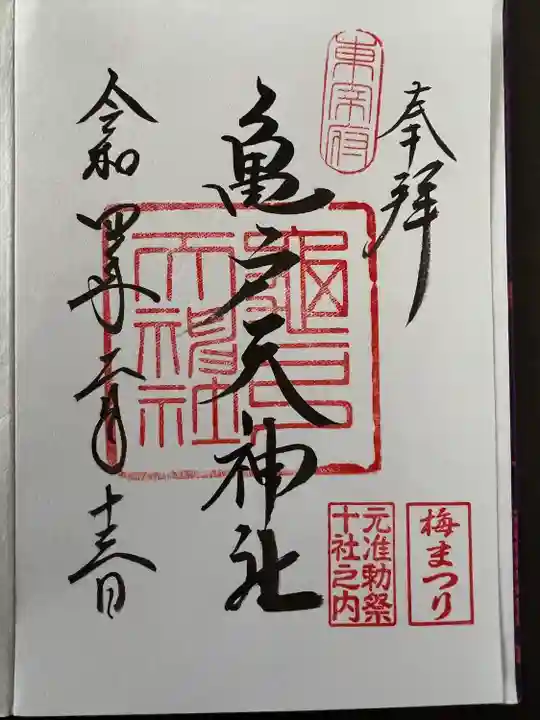 奉拝
東宰府
亀戸天神社
龜戸
天神社
令和四年二月十三日
梅まつり
元准勅祭
十社之内